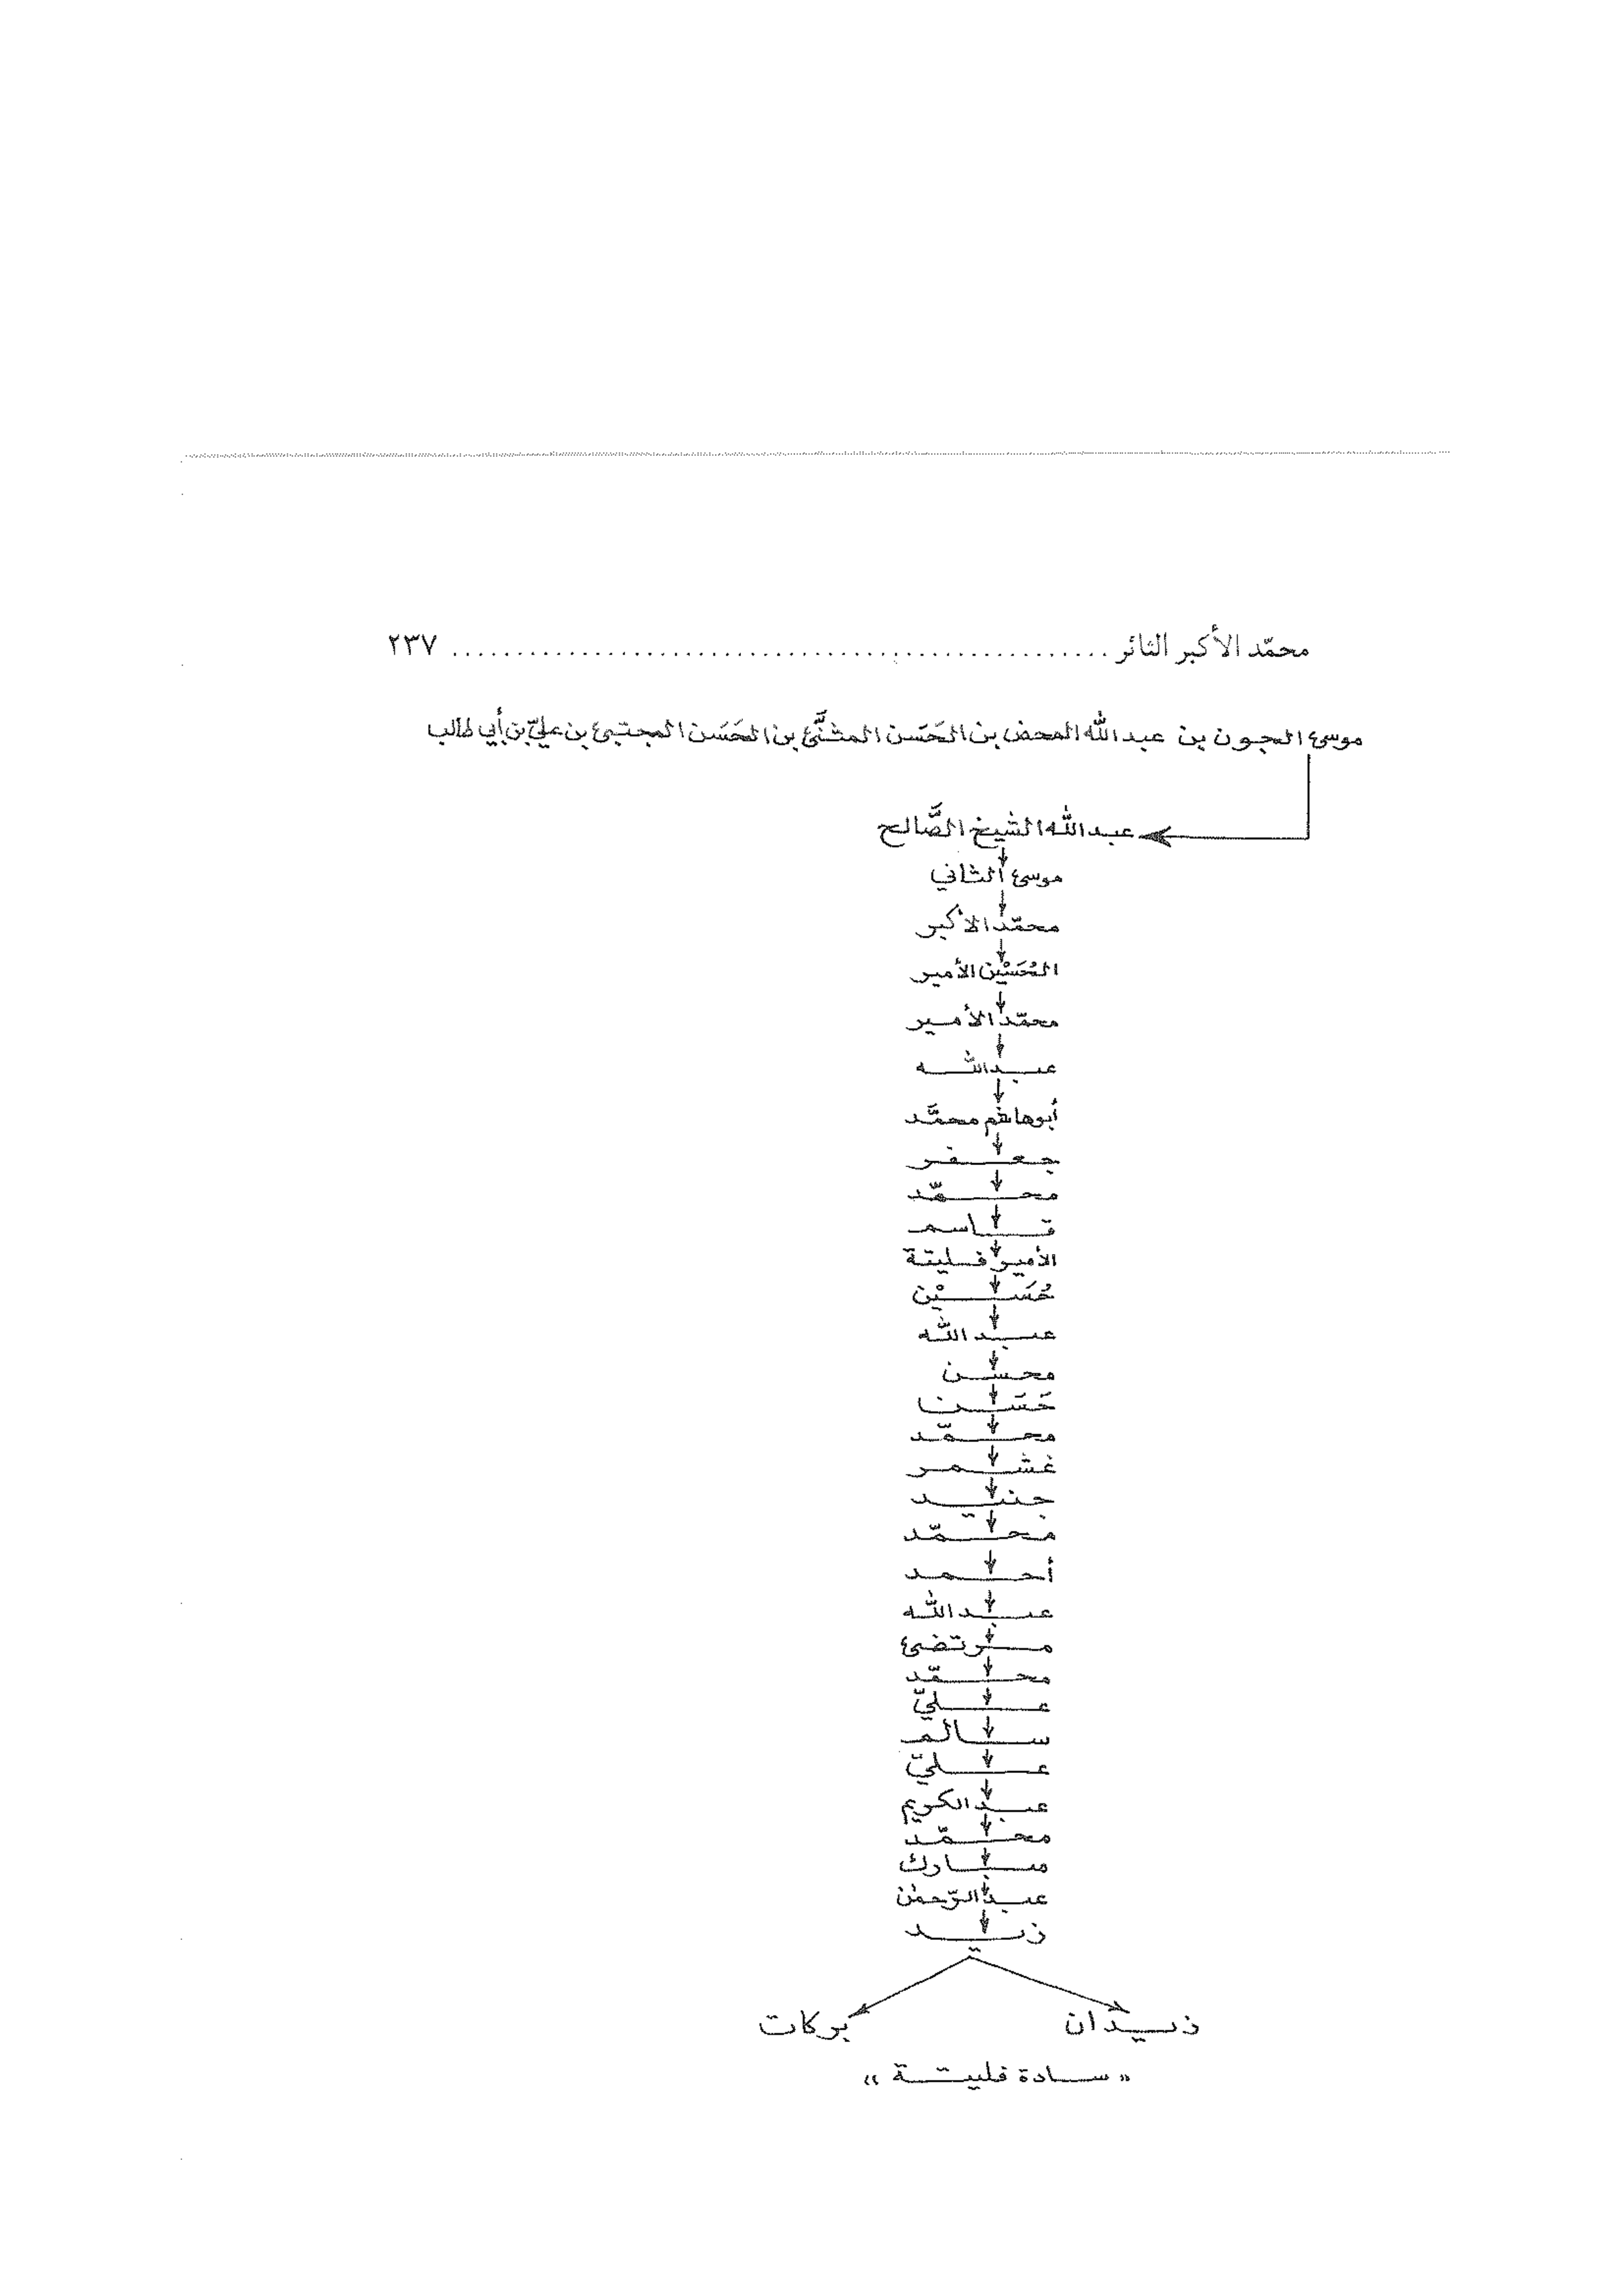 محمّد الأكبر الثائر ........................................................ ٢٣٧
موسىٰ الجون بن عبدالله المحض بن الحَسَن المثنَّىٰ بن الحَسَن المجتبىٰ بن عليّ بن أبي طالب
عبدالله الشيخ الصَّالح
موسىٰ الثاني
محمّد الأكبر
الحُسَيْن الأمير
محمّد الأمير
عبدالله
أبوهاشم محمَّد
جعفر
محمّد
قاسم
الأمير فليتة
حُسَيْن
عبدالله
محسن
حَسَن
محمّد
غشمر
جنيد
محمّد
أحمد
عبدالله
مرتضىٰ
محمّد
عليّ
سالم
عليّ
عبدالكريم
محمّد
مبارك
عبدالرّحمٰن
زيد
زيدان
بركات
« سادة فليتة »